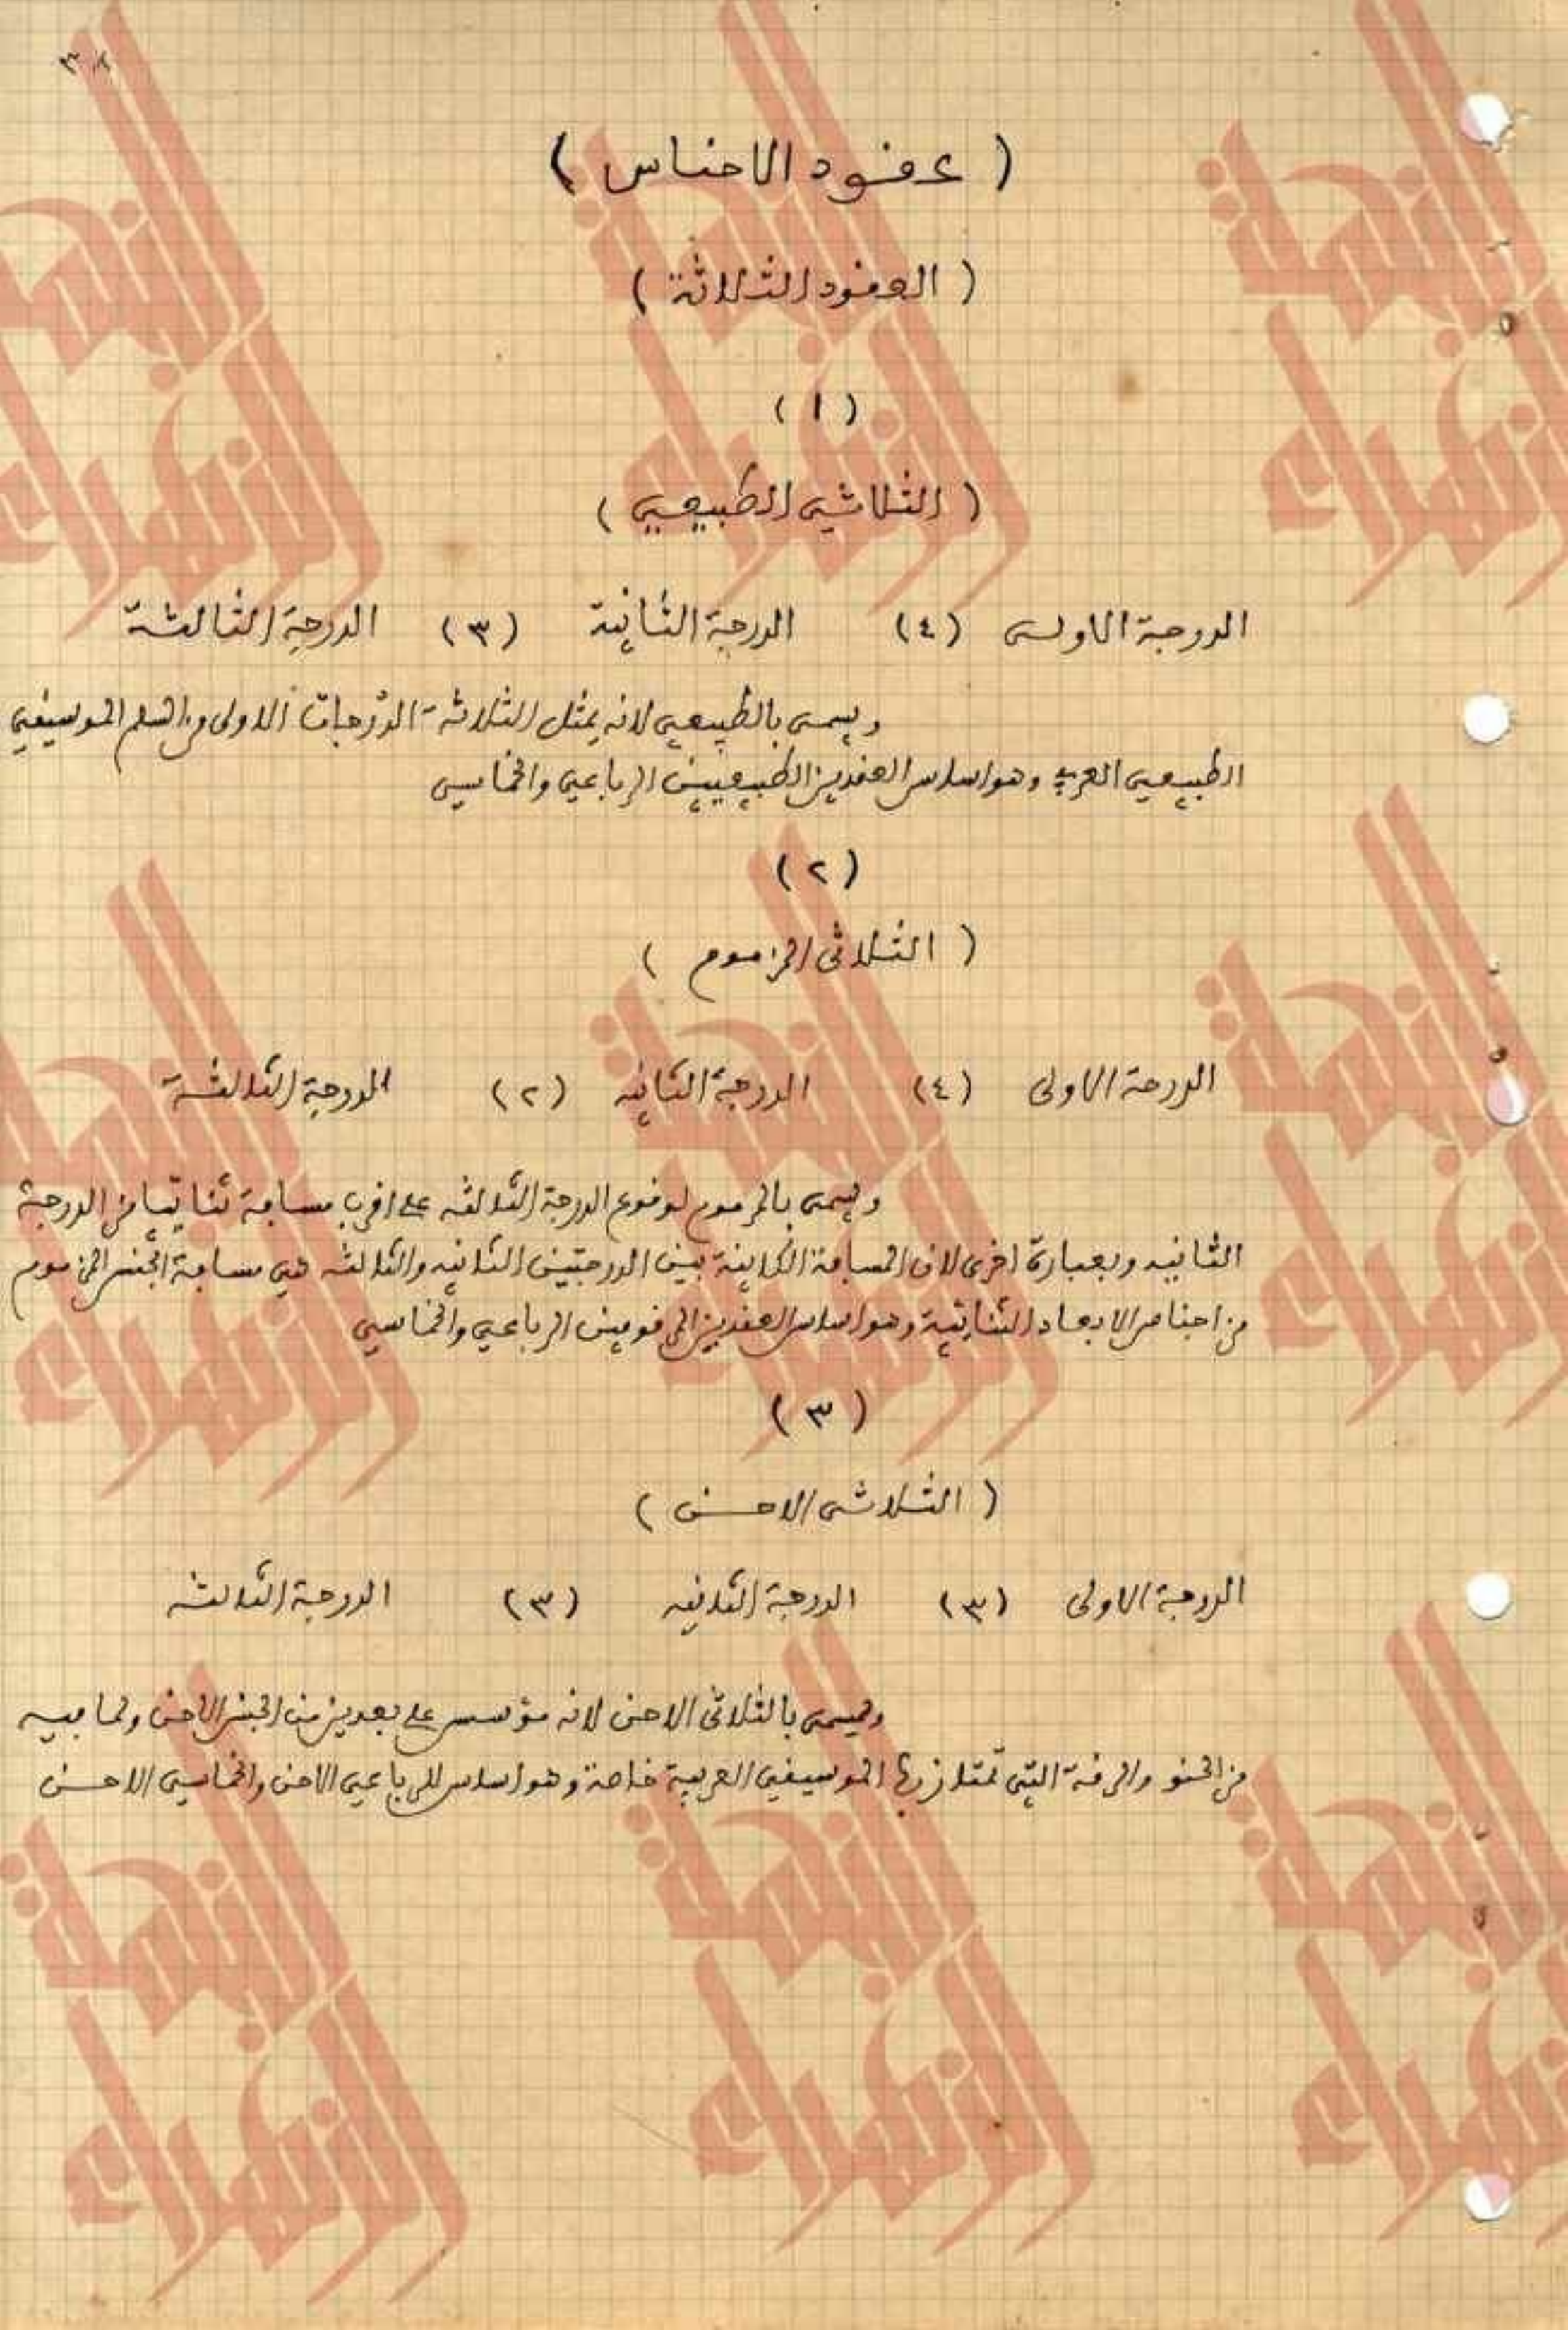 ( عقود الاجناس )
( العقود الثلاثة )
( ١ )
( الثلاثي الطبيعي )
الدرجة الاولى (٤) الدرجة الثانية (٣) الدرجة الثالثة
ويسمى بالطبيعي لانه يمثل الثلاثة الدرجات الاولى من السلم الموسيقي
الطبيعي العربي وهو اساس العقدين الطبيعيين الرباعي والخماسي
(٢)
( الثلاثي المزموم )
الدرجة الاولى (٤) الدرجة الثانيه (٢) الدرجة الثالثة
ويسمى بالمزموم لوقوع الدرجة الثالثه على اقرب مسافة ثنائيا من الدرجة
الثانيه وبعبارة اخرى لان المسافة الكاينة بين الدرجتين الثانيه والثالثه هي مسافة الجنس المزموم
من اجناس الابعاد الثنائية وهو اساس العقدين الرباعي والخماسي
(٣)
( الثلاثي الاحن )
الدرجة الاولى (٣) الدرجة الثانيه (٣) الدرجة الثالثه
ويسمى بالثلاثي الاحن لانه مؤسس على بعدين من الجنس الاحن ولما فيه
من الحنو والرقة التي تمتاز بها الموسيقى العربية خاصة وهو اساس للرباعي الاحن والخماسي الاحن